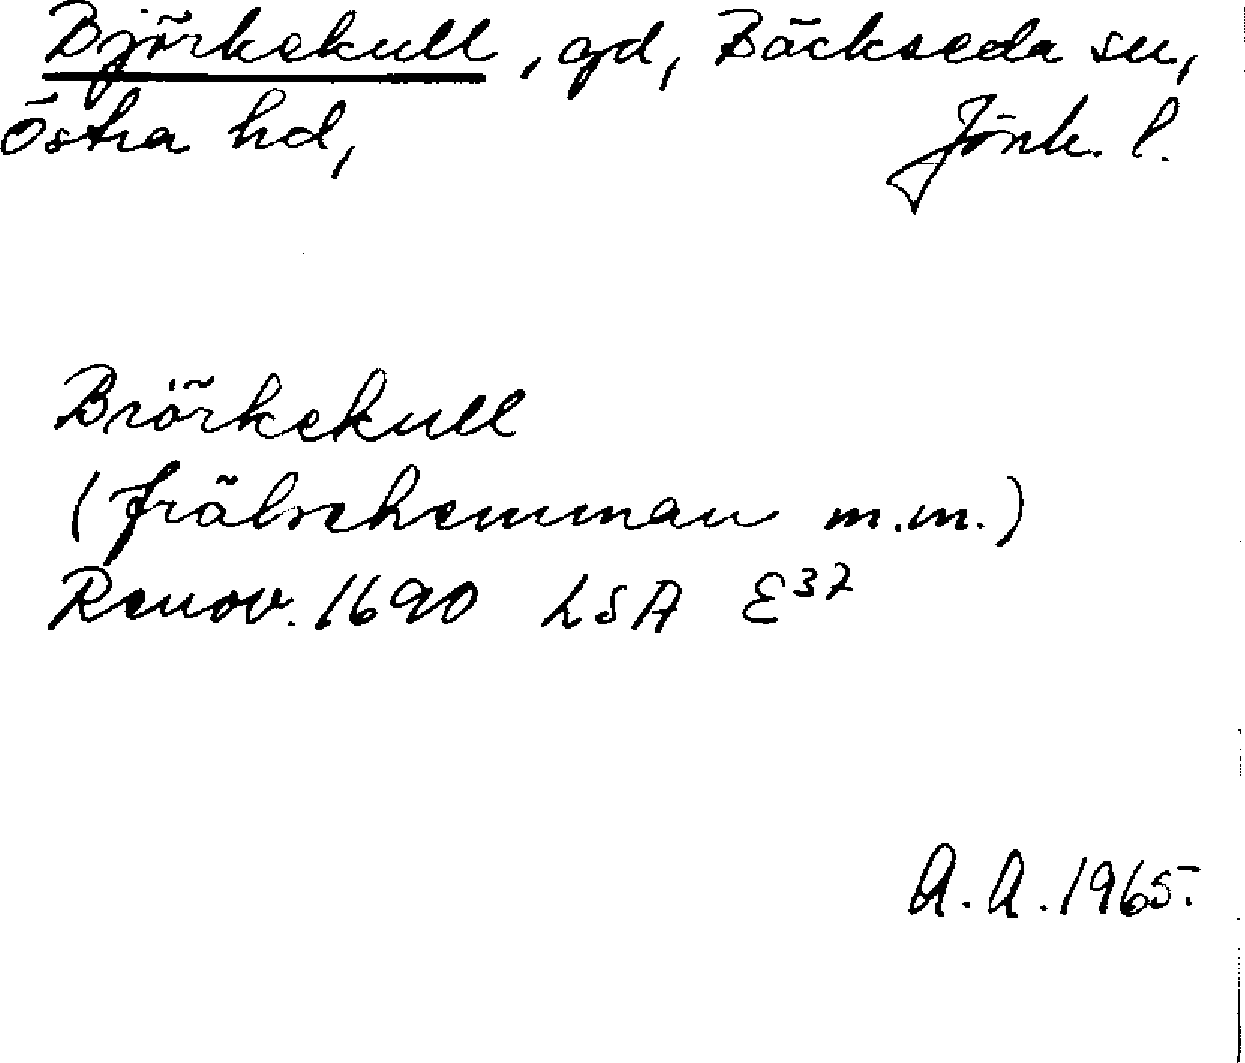 Björkekull, gd, Bäckseda sn,
Östra hd, Jönk. l.
Biörkekull
(frälsehemman m.m.)
Renov. 1690 LSA E³⁷
A. A. 1965.